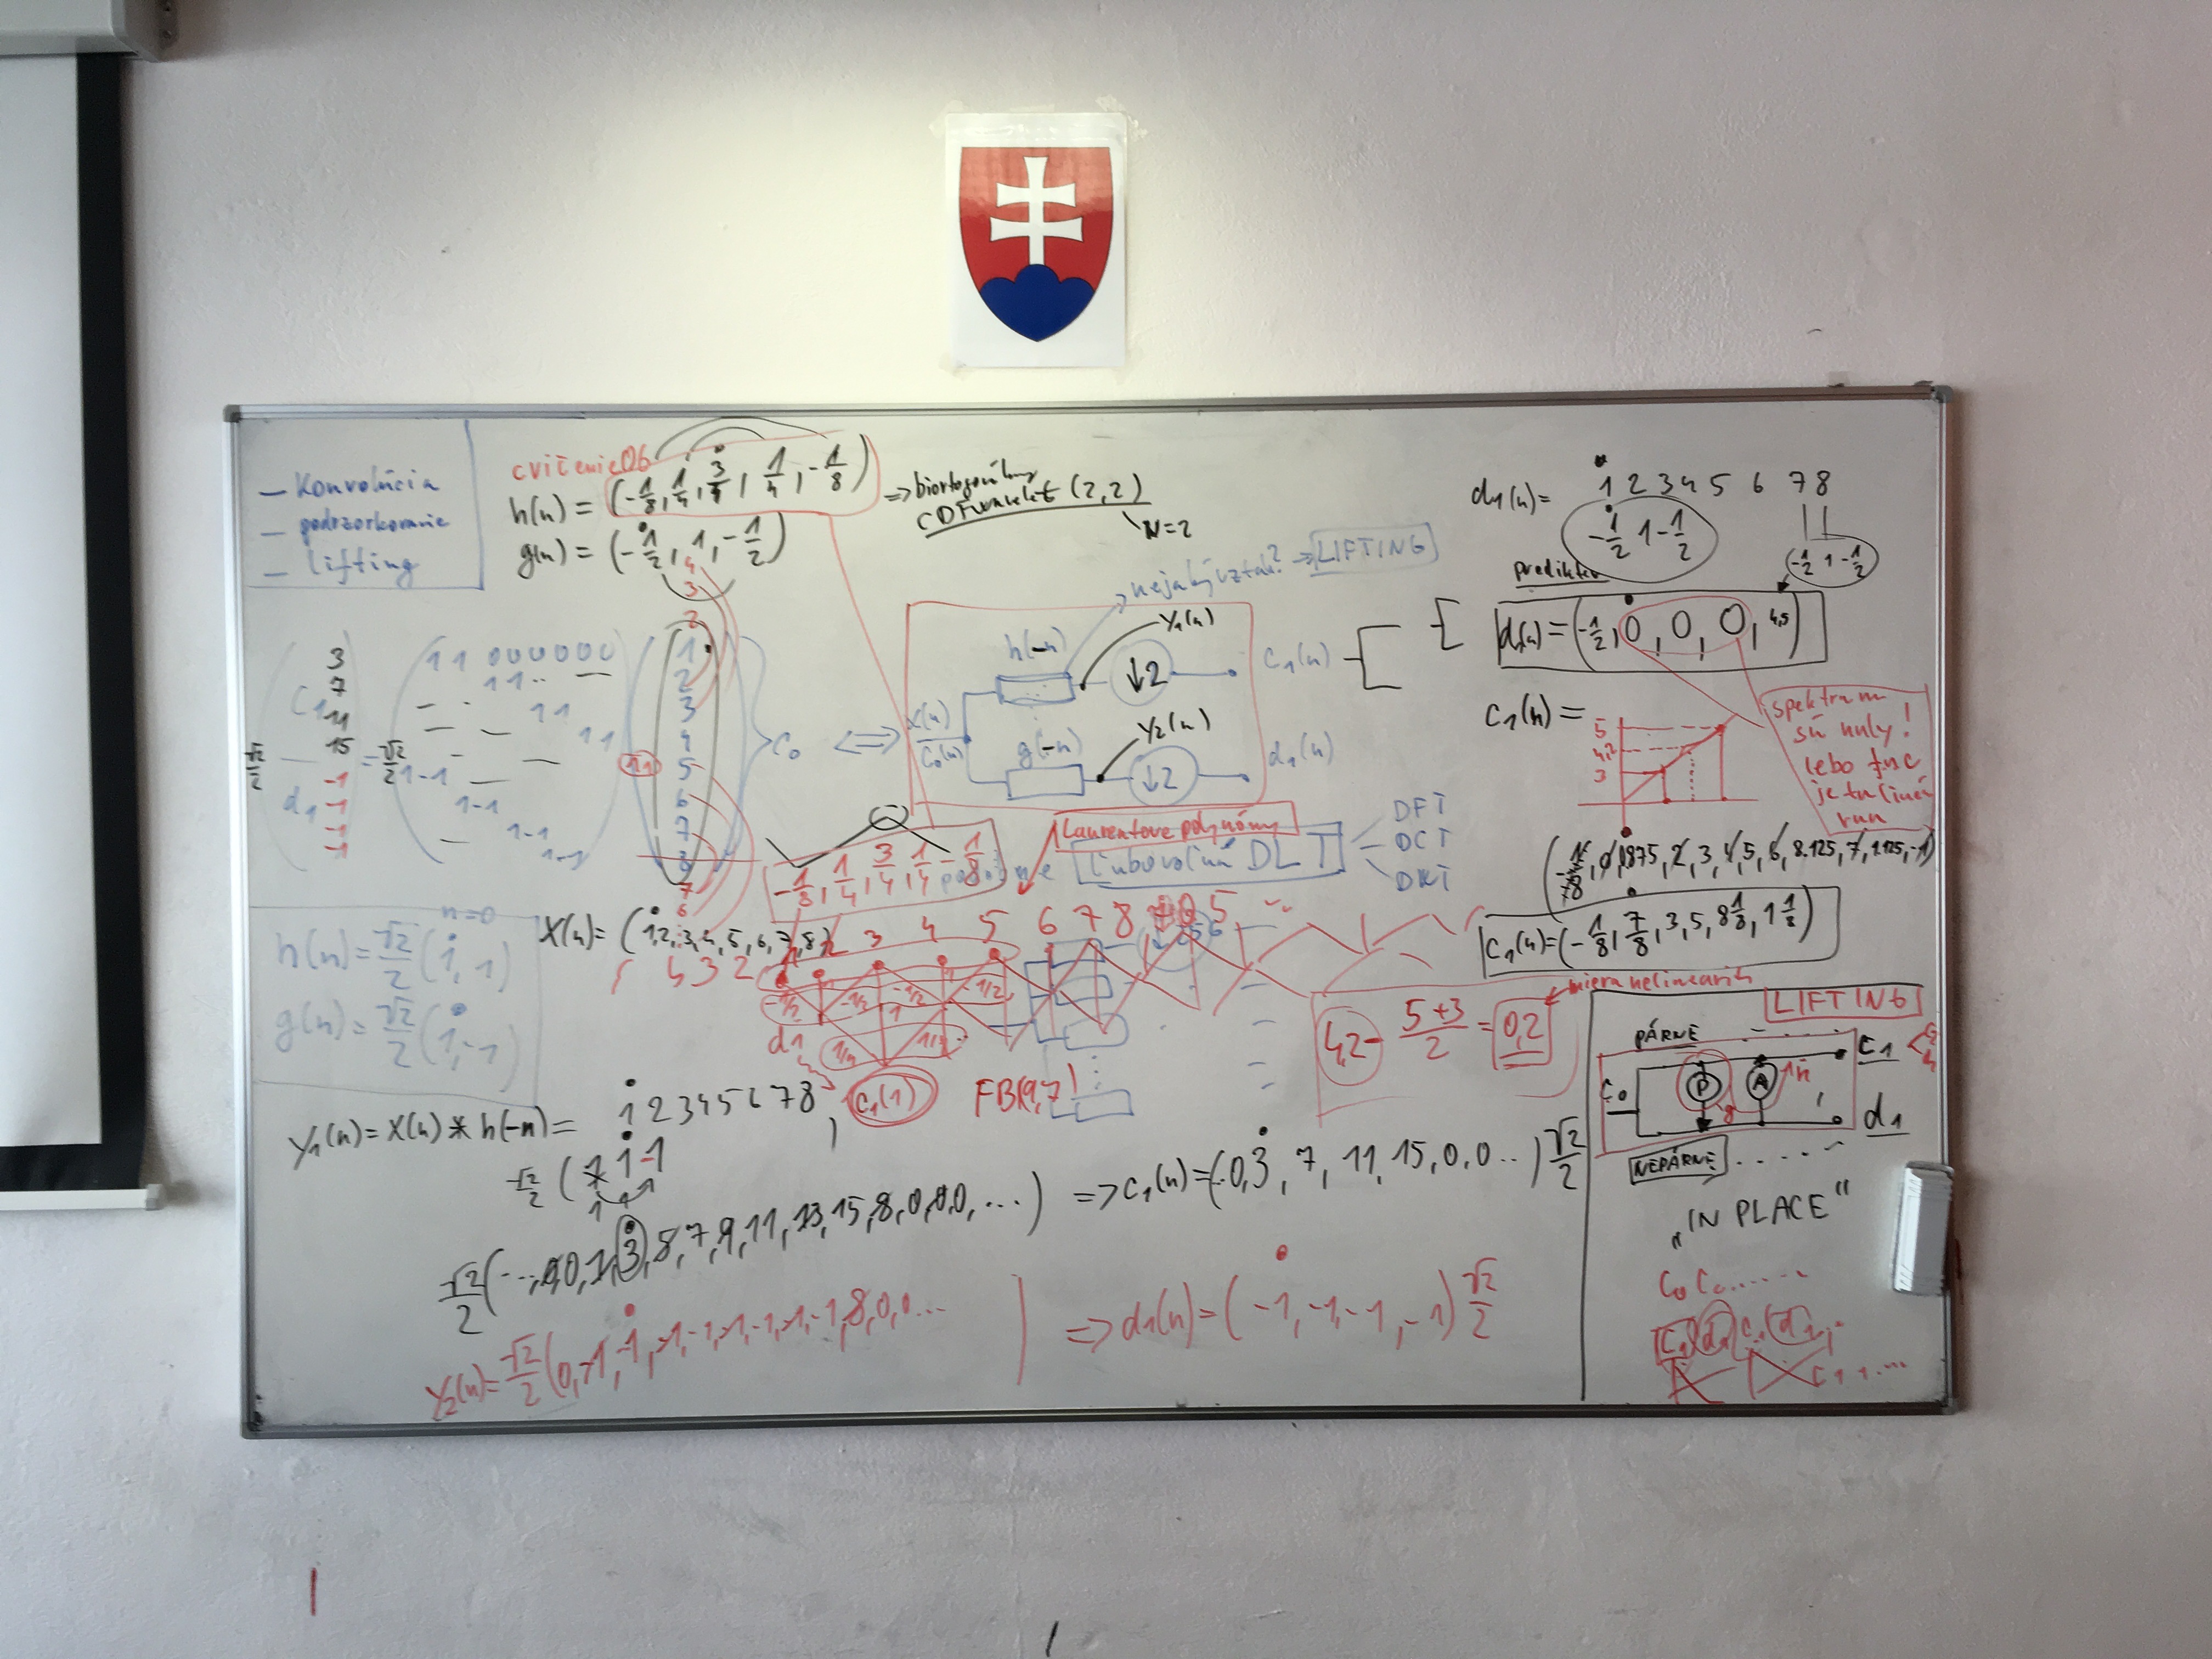 — Konvolúcia
— podvzorkovanie
— lifting
cvičenie06
h(n) = (-1/8, 1/4, 3/4, 1/4, -1/8)
g(n) = (-1/2, 1, -1/2)
=> biortogonálny
CDF wavelet (2,2)
N=2
nejaký vzťah? => LIFTING
d1(n) = 1 2 3 4 5 6 7 8
-1/2 1 -1/2
-1/2 1 -1/2
prediktor
d1(n) = (-1/2, 0, 0, 0, 4,5)
c1(n) =
5
4,2
3
spektrum
sú nuly!
lebo fnc
je tu lineár
c1
3
7
11
15
d1
-1
-1
-1
-1
√2/2
= √2/2
1 1 0 0 0 0 0 0
1 1 .. —
1 1
1 1
1 -1
1 -1
1 -1
1 -1
4
3
2
1
2
3
4
5
6
7
8
7
6
} c0 <=>
x(n)
c0(n)
h(-n)
y1(n)
↓2
c1(n)
g(-n)
y2(n)
↓2
d1(n)
Laurentove polynómy
ľubovoľná DLT
DFT
DCT
DKT
-1/8, 1/4, 3/4, 1/4, -1/8
c1(n) = (-1/8, 7/8, 3, 5, 8 1/8, 1 1/8)
n=0
h(n) = √2/2 (1, 1)
g(n) = √2/2 (1, -1)
x(n) = (1, 2, 3, 4, 5, 6, 7, 8)
4 3 2
3 4 5 6 7 8
-1/2 -1/2 -1/2 -1/2
d1
1/4
c1(1)
FB(9,7)
4,2 - (5+3)/2 = 0,2
miera nelinearity
LIFTING
PÁRNE
c0
P
A
c1
d1
NEPÁRNE
"IN PLACE"
c0 c0 ......
c1 d1 c1 d1
y1(n) = x(n) * h(-n) = 1 2 3 4 5 6 7 8
√2/2 (1 1
√2/2 (..., 0, 0, 1, 3, 5, 7, 9, 11, 13, 15, 8, 0, 0, 0, ...) => c1(n) = (..0, 3, 7, 11, 15, 0, 0 ..) √2/2
y2(n) = √2/2 (0, -1, -1, -1, -1, -1, -1, -1, -1, 8, 0, 0... ) => d1(n) = (-1, -1, -1, -1) √2/2